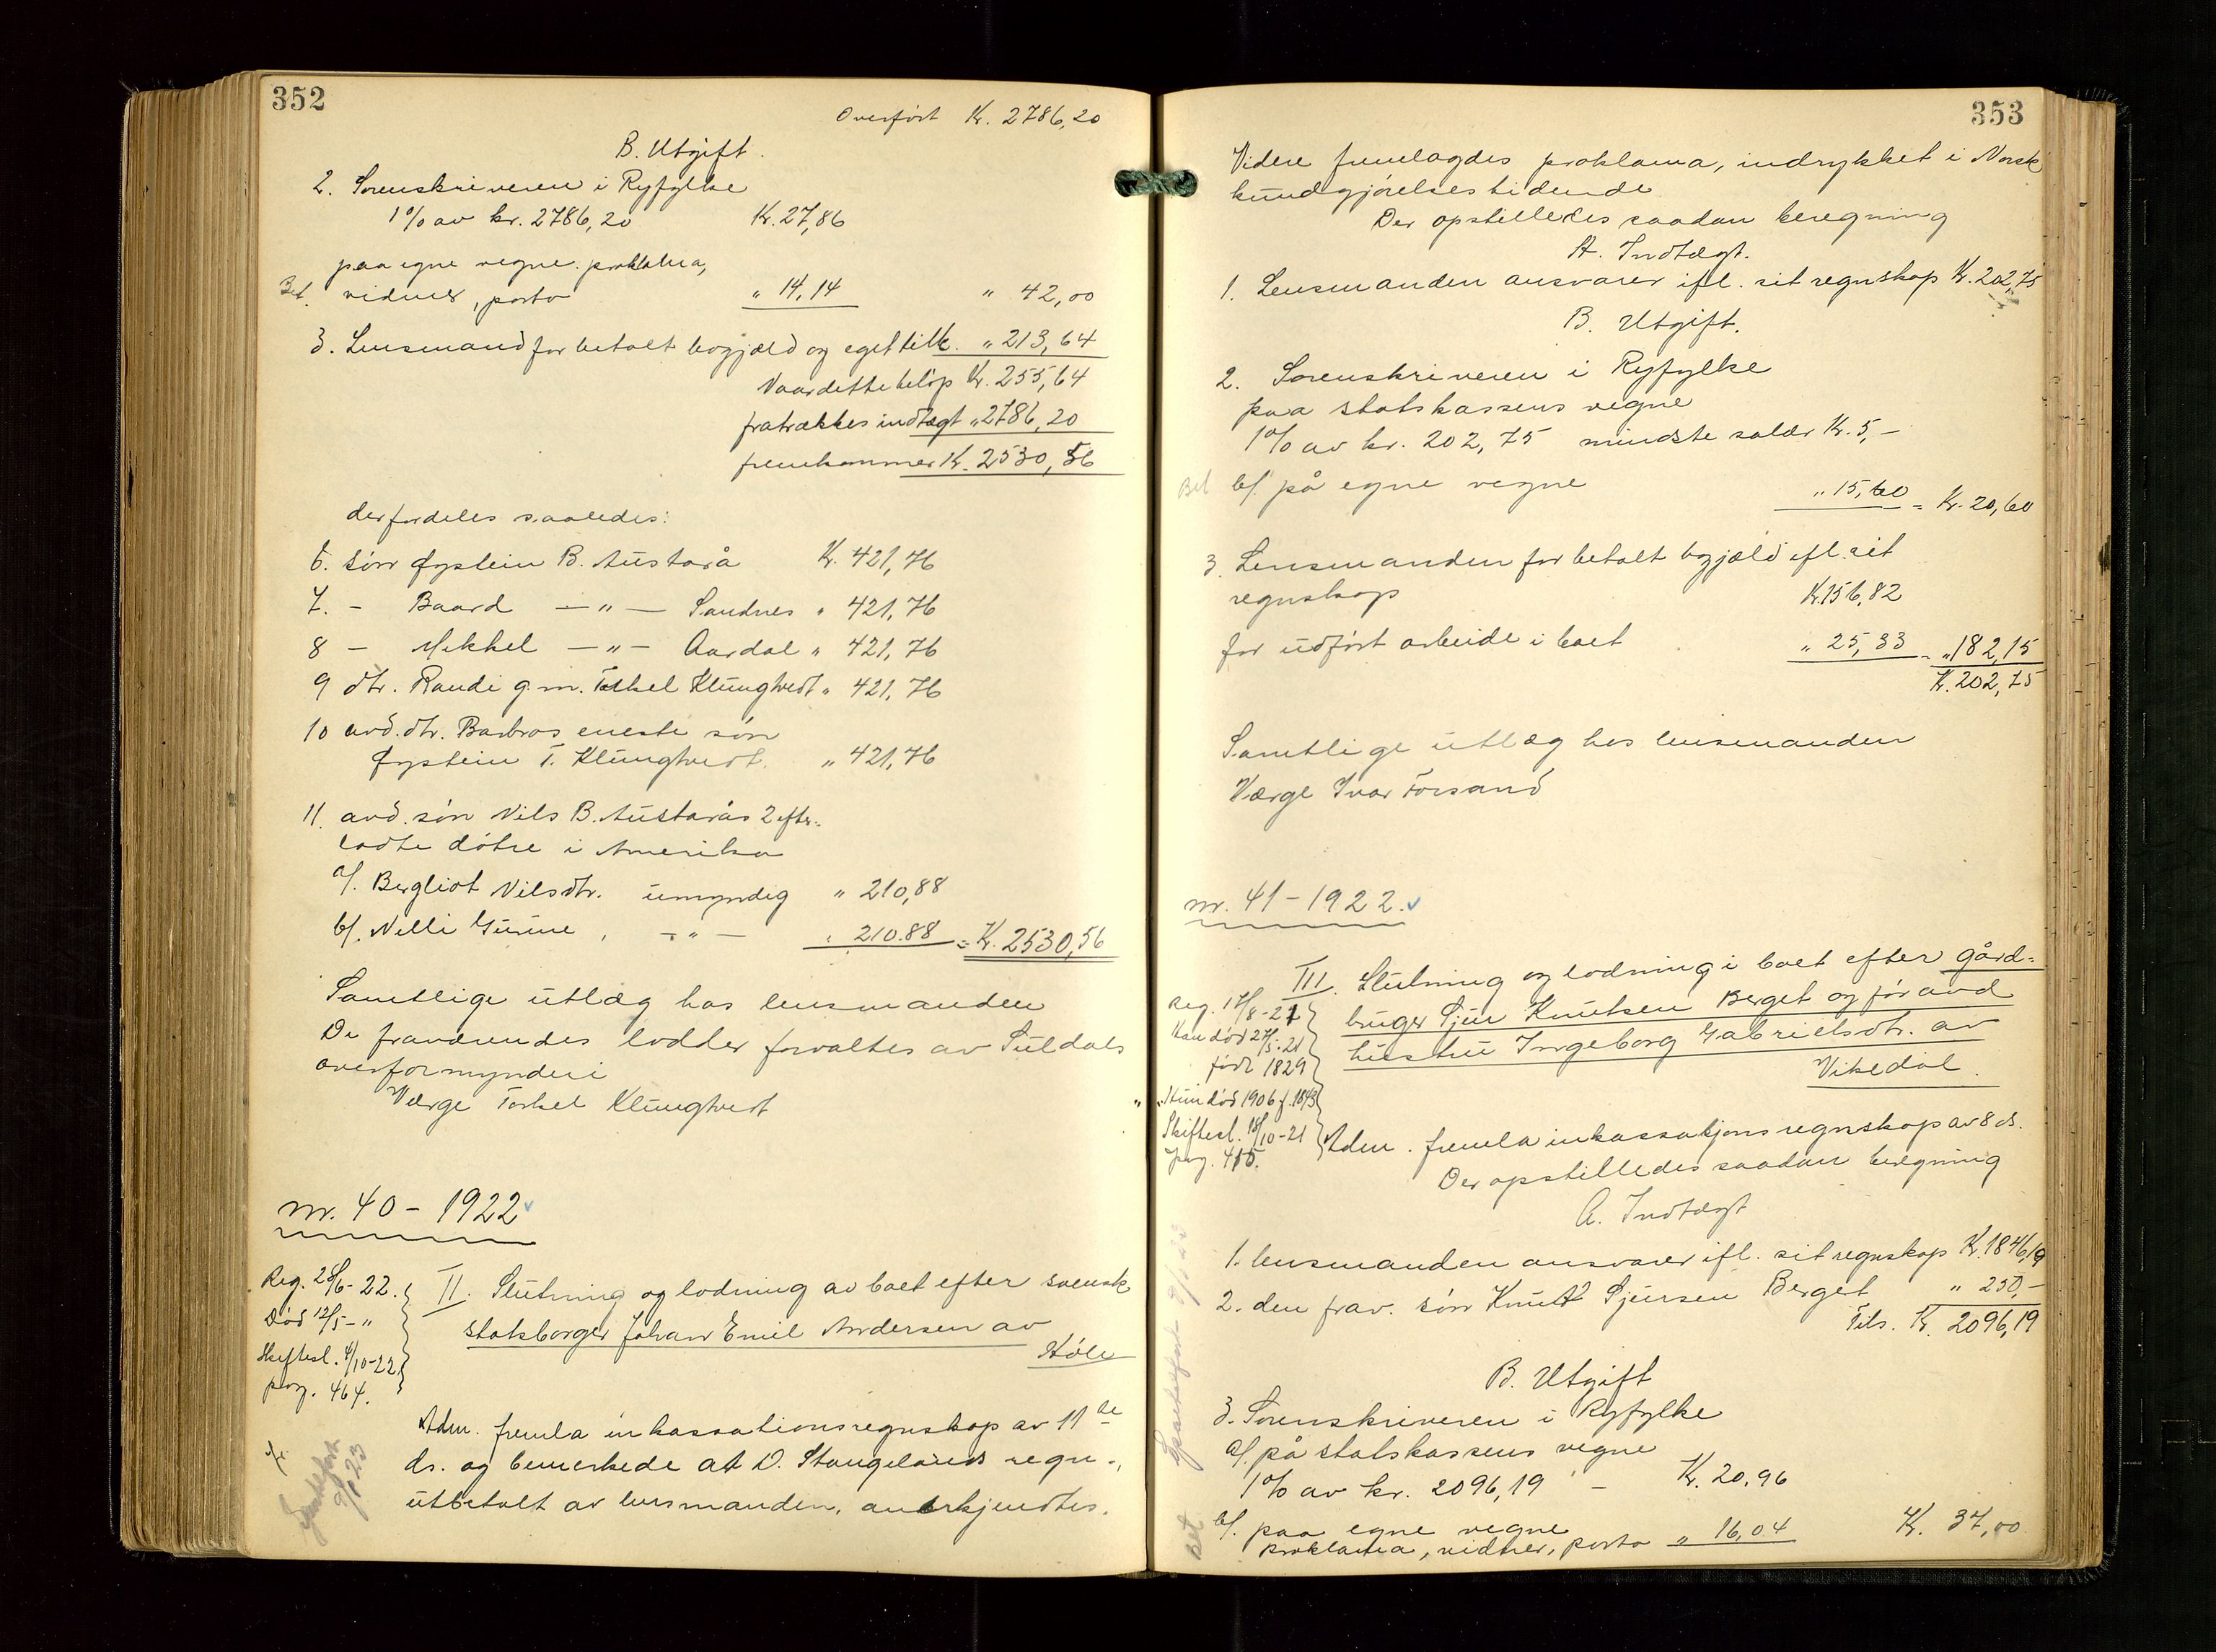 352
Overført Kr. 2786,20
B. Utgift.
2. Sorenskriveren i Ryfylke
1% av kr. 2786,20 Kr. 27,86
paa egne vegne. proklama,
Bet. vidner, porto " 14,14 " 42,00
3. Lensmand for betalt bogjæld og eget tilk. " 213,64
Naar dette beløp Kr. 255,64
fratrækkes indtægt " 2786,20
fremkommer Kr. 2530,56
der fordeles saaledes:
6. søn Øystein B. Austarå Kr. 421,76
7. - Baard — " — Sandnes " 421,76
8 - Mikkel — " — Aardal " 421,76
9 dtr. Randi g. m. Torkel Klungtvedt " 421,76
10 avd. dtr. Barbros eneste søn
Øystein T. Klungtvedt. " 421,76
11. avd. søn Nils B. Austarås 2 efter-
ladte døtre i Amerika
a/. Bergliot Nilsdtr. umyndig " 210,88
b/. Nelli Gurine, — " — " 210.88 = Kr. 2530,56
Samtlige utlæg hos lensmanden
De fraværendes lodder forvaltes av Suldals
overformynderi
Værge Torkel Klungtvedt
nr. 40 - 1922
Reg. 28/6-22.
Død 12/5 - "
Skiftesl. 4/10-22
pag. 464.
II. Slutning og lodning av boet efter svensk
statsborger Johan Emil Andersen av
Høle
Adm. fremla inkassationsregnskap av 11te
ds. og bemerkede at D. Stangelands regn-,
utbetalt av lensmanden, anerkjendtes.
353
Videre fremlagdes proklama, indrykket i Norsk
kundgjørelsestidende
Der opstilledes saadan beregning
A. Indtægt.
1. Lensmanden ansvarer ifl. sit regnskap Kr. 202,75
B. Utgift.
2. Sorenskriveren i Ryfylke
paa statskassens vegne
1% av kr. 202,75 mindste salær Kr. 5,-
Bet b/. på egne vegne " 15,60 = Kr. 20,60
3. Lensmanden for betalt bogjæld ifl. sit
regnskap Kr. 156,82
for utført arbeide i boet " 25,33 = " 182,15
Kr. 202,75
Samtlige utlæg hos lensmanden
Værge Ivar Forsand
nr. 41 - 1922.
Reg. 17/8-21
Han død 27/5-21
født 1829
Hun død 1906 f. 1843
Skiftesl. 18/10-21
pag. 415.
III. Slutning og lodning i boet efter gård-
bruger Sjur Knutsen Berget og før avd
hustru Ingeborg Gabrielsdtr. av
Vikedal.
Adm. fremla inkassasjonsregnskap av 8 ds.
Der opstilledes saadan beregning
A. Indtægt
1. lensmanden ansvarer ifl. sit regnskap Kr. 1846,19
2. den frav. søn Knut Sjursen Berget " 250,-
Tils. Kr. 2096,19
B. Utgift
3. Sorenskriveren i Ryfylke
a/. på statskassens vegne
1% av kr. 2096,19 - Kr. 20,96
Bet b/. paa egne vegne
proklama, vidner, porto " 16,04 Kr. 37,00